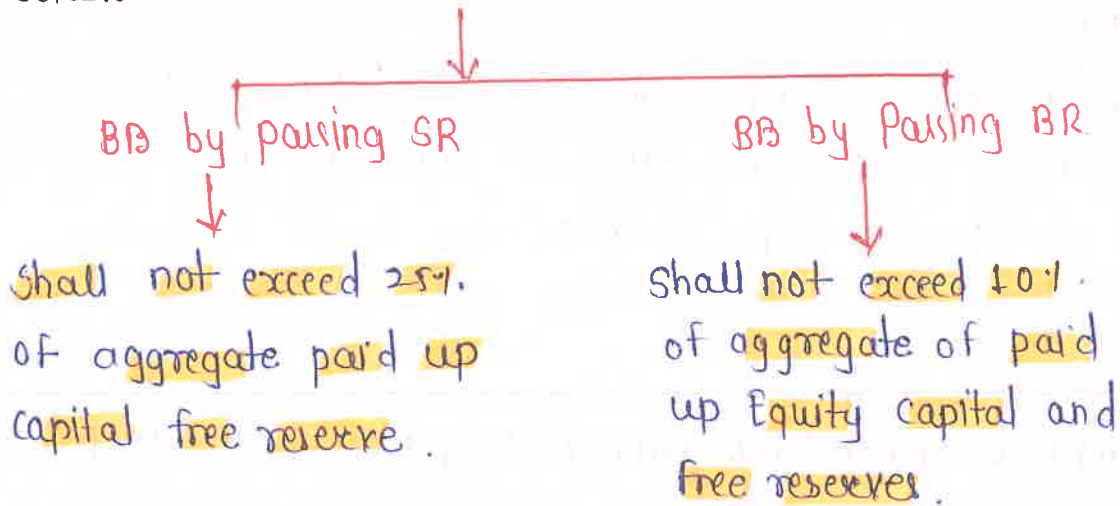 BB by passing SR
BB by Passing BR
Shall not exceed 25%.
of aggregate paid up
capital free reserve.
Shall not exceed 10%.
of aggregate of paid
up Equity capital and
free reserves.